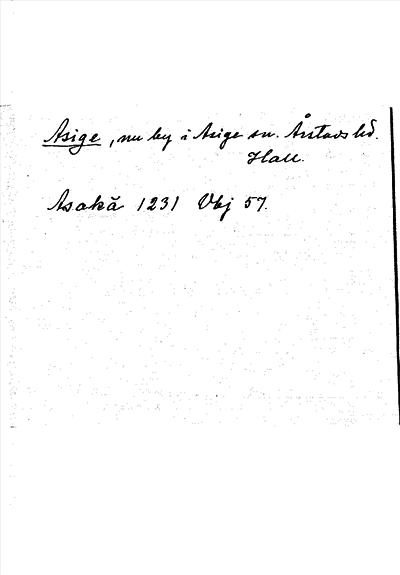 Asige, nu by i Asige sn. Årstads hd.
Hall.
Asakā 1231 Vbj 57.